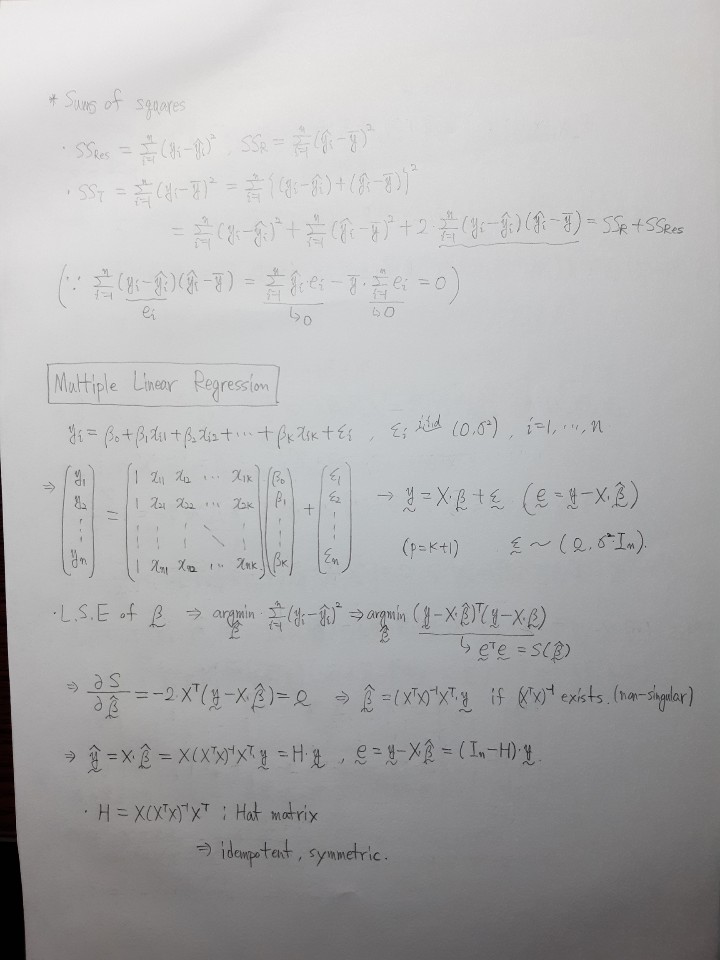 * Sums of squares
· SS_Res = Σ_{i=1}^{n} (y_i - ŷ_i)², SS_R = Σ_{i=1}^{n} (ŷ_i - ȳ)²
· SS_T = Σ_{i=1}^{n} (y_i - ȳ)² = Σ_{i=1}^{n} {(y_i - ŷ_i) + (ŷ_i - ȳ)}²
= Σ_{i=1}^{n} (y_i - ŷ_i)² + Σ_{i=1}^{n} (ŷ_i - ȳ)² + 2·Σ_{i=1}^{n} (y_i - ŷ_i)(ŷ_i - ȳ) = SS_R + SS_Res
(∵ Σ_{i=1}^{n} (y_i - ŷ_i)(ŷ_i - ȳ) = Σ_{i=1}^{n} ŷ_i e_i - ȳ·Σ_{i=1}^{n} e_i = 0)
e_i ↳0 ↳0
Multiple Linear Regression
y_i = β_0 + β_1 x_{i1} + β_2 x_{i2} + ··· + β_K x_{iK} + ε_i , ε_i iid (0, σ²), i=1, ···, n
⇒ (y_1 y_2 ⋮ y_n) = (1 x_{11} x_{12} ··· x_{1K} 1 x_{21} x_{22} ··· x_{2K} ⋮ ⋮ ⋮ ⋱ ⋮ 1 x_{n1} x_{n2} ··· x_{nK}) (β_0 β_1 ⋮ β_K) + (ε_1 ε_2 ⋮ ε_n) → y̰ = X·β̰ + ε̰ (ḛ = y̰ - X·β̰̂)
(p = K+1) ε̰ ~ (0̰, σ²·I_n).
· L.S.E of β̰ ⇒ argmin_{β̰̂} Σ_{i=1}^{n} (y_i - ŷ_i)² ⇒ argmin_{β̰̂} (y̰ - X·β̰̂)ᵀ(y̰ - X·β̰)
↳ ḛᵀḛ = S(β̰̂)
⇒ ∂S/∂β̰̂ = -2·Xᵀ(y̰ - X·β̰̂) = 0̰ ⇒ β̰̂ = (XᵀX)⁻¹Xᵀ·y̰ if (XᵀX)⁻¹ exists. (non-singular)
⇒ ŷ̰ = X·β̰̂ = X(XᵀX)⁻¹Xᵀ·y̰ = H·y̰ , ḛ = y̰ - X·β̰̂ = (I_n - H)·y̰.
· H = X(XᵀX)⁻¹Xᵀ ; Hat matrix
⇒ idempotent, symmetric.